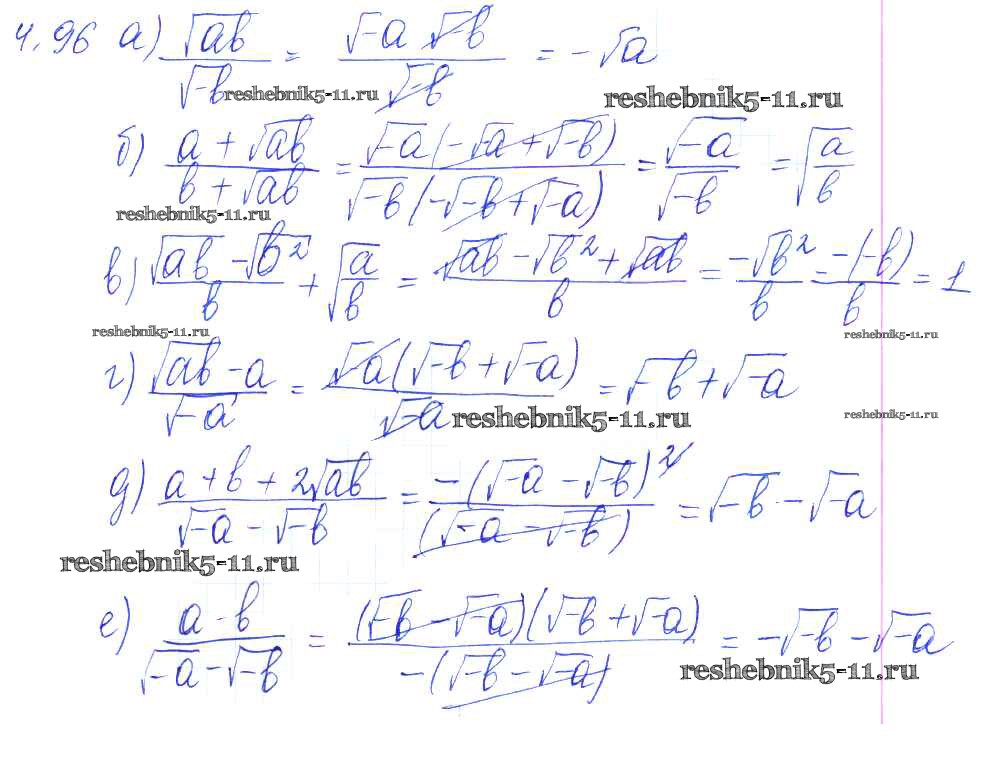 4.96 а) √ab / √-b = √-a √-b / √-b = -√a
reshebnik5-11.ru reshebnik5-11.ru
б) a + √ab / b + √ab = √-a(-√-a + √-b) / √-b(-√-b + √-a) = √-a / √-b = √a/b
reshebnik5-11.ru
в) √ab - √b² / b + √a/b = √ab - √b² + √ab / b = -√b² / b = -(-b) / b = 1
reshebnik5-11.ru reshebnik5-11.ru
г) √ab - a / √-a = √-a(√-b + √-a) / √-a = √-b + √-a
reshebnik5-11.ru reshebnik5-11.ru
д) a + b + 2√ab / √-a - √-b = -(√-a - √-b)² / (√-a - √-b) = √-b - √-a
reshebnik5-11.ru
е) a - b / √-a - √-b = (√-b - √-a)(√-b + √-a) / -(√-b - √-a) = -√-b - √-a
reshebnik5-11.ru